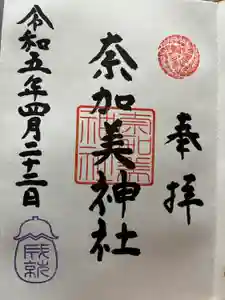 奉拝
奈加美神社
令和五年四月二十二日
成就